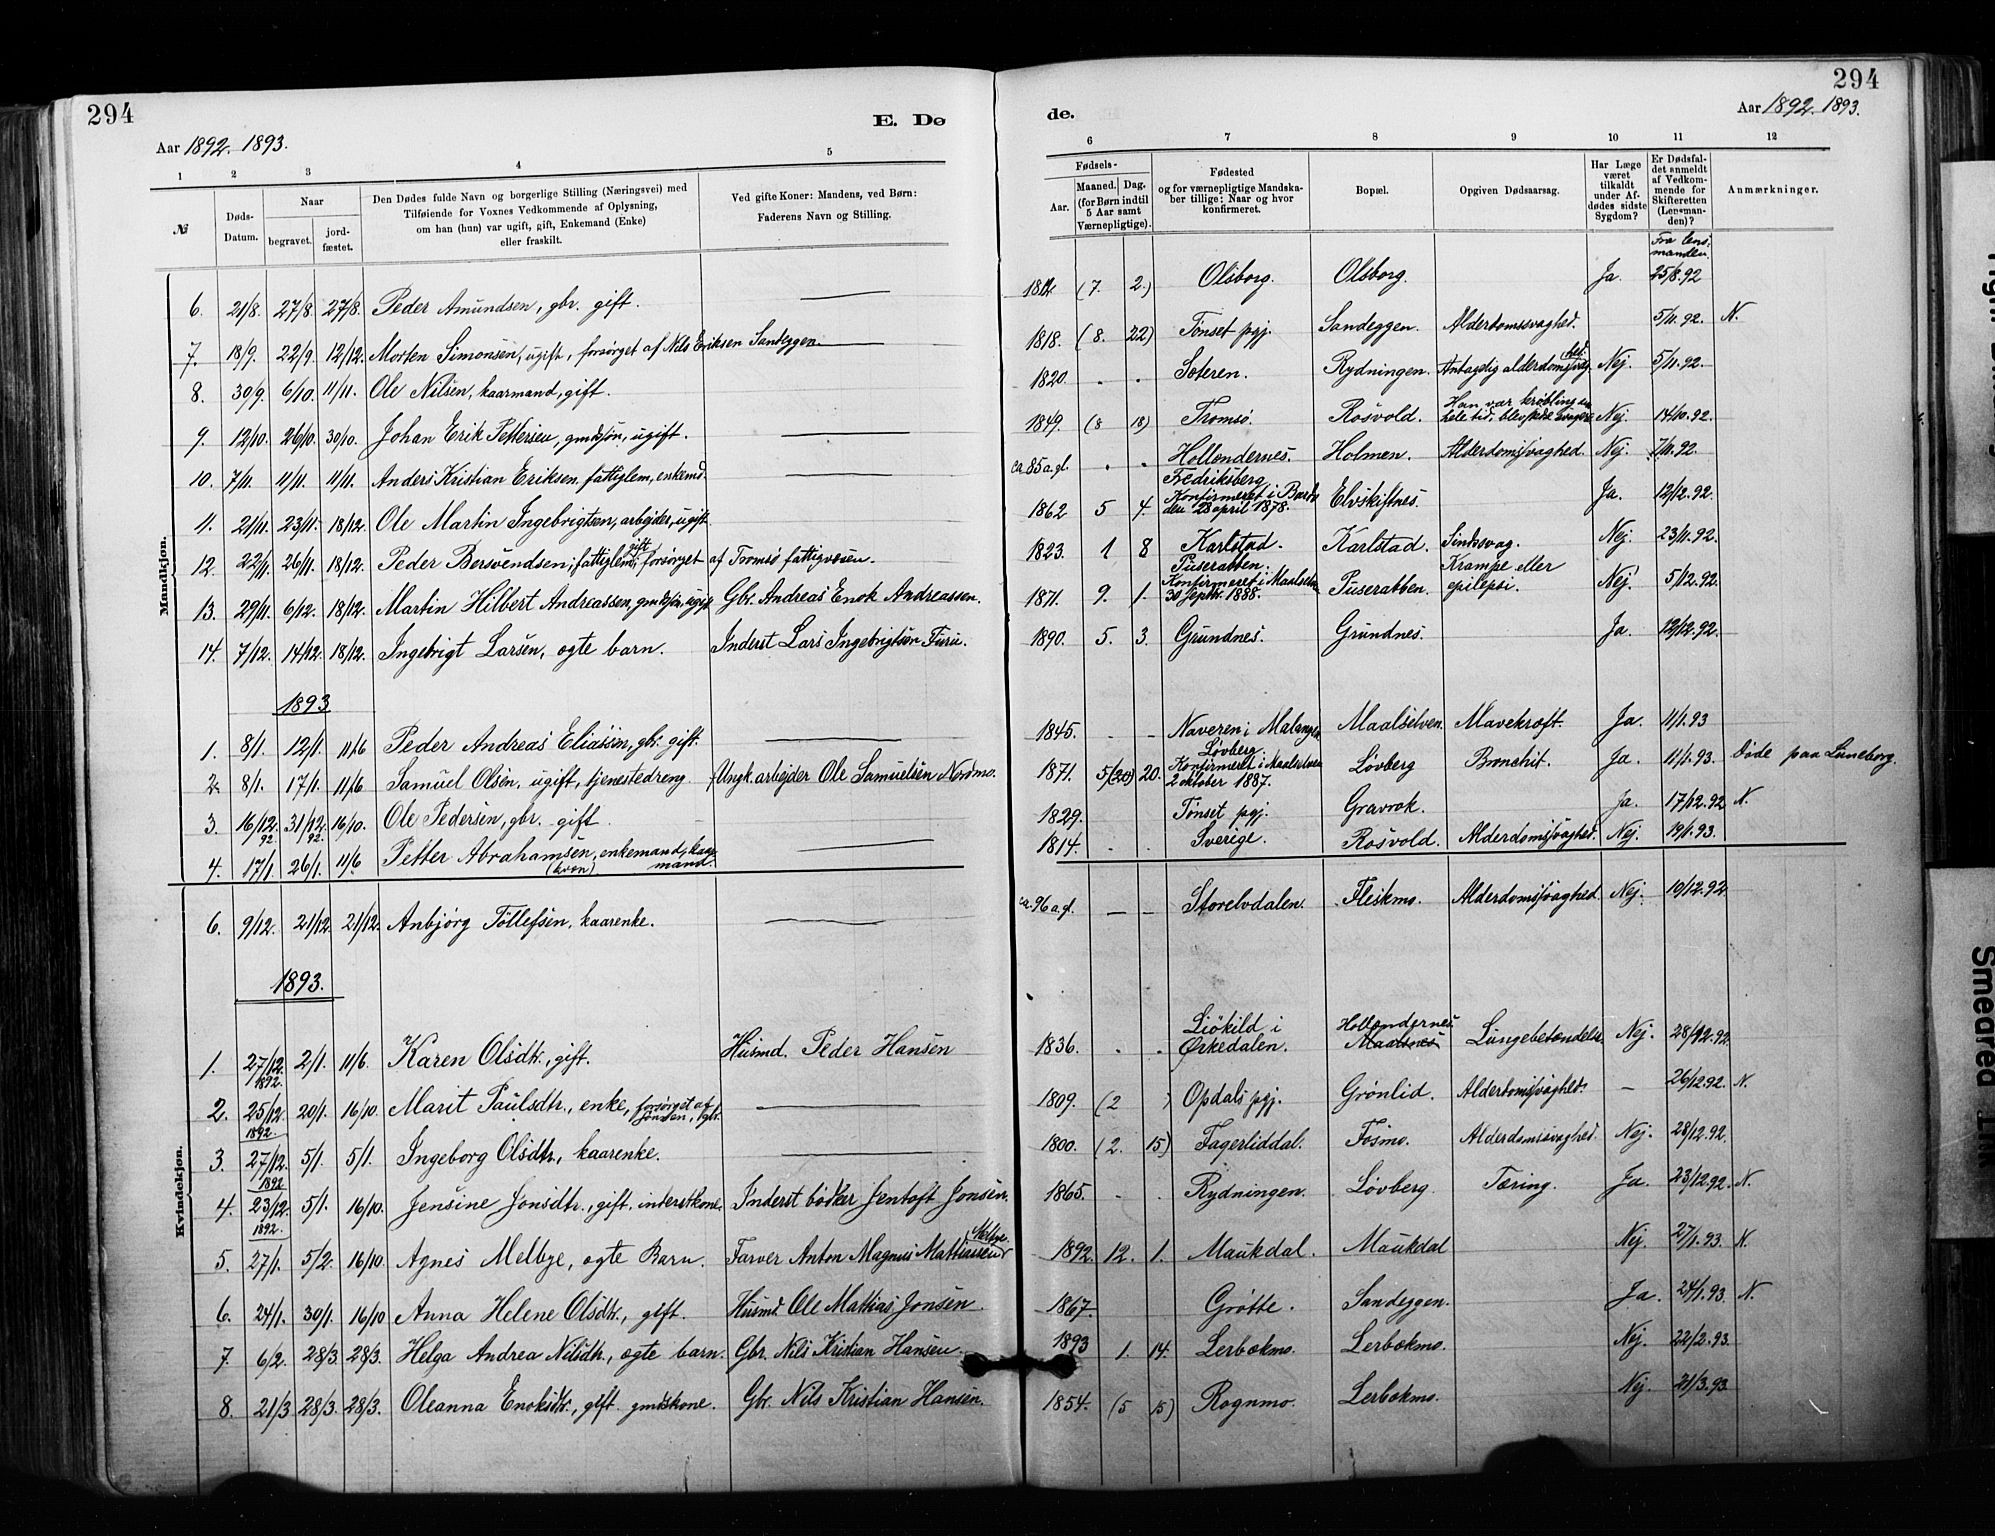 294
E. Dø
Aar 1892. 1893.
1 2 3 4 5
№
Døds-Datum.
Naar
begravet.
jord-fæstet.
Den Dødes fulde Navn og borgerlige Stilling (Næringsvei) med
Tilføiende for Voxnes Vedkommende af Oplysning,
om han (hun) var ugift, gift, Enkemand (Enke)
eller fraskilt.
Ved gifte Koner: Mandens, ved Børn:
Faderens Navn og Stilling.
Mandkjøn.
6. 21/8. 27/8. 27/8. Peder Amundsen, gbr. gift.
7. 18/9. 22/9. 12/12. Morten Simonsen, ugift, forsørget af Nils Eriksen Sandeggen
8. 30/9. 6/10. 11/11. Ole Nilsen, kaarmand, gift.
9. 12/10. 26/10. 30/10. Johan Erik Pettersen, gmdsøn, ugift.
10. 7/11. 11/11. 11/11. Anders Kristian Eriksen, fattiglem, enkemd.
11. 21/11. 23/11. 18/12. Ole Martin Ingebrigtsen, arbejder, ugift
12. 22/11. 26/11. 18/12. Peder Bersvendsen, fattiglem, gift, forsørget af Tromsø fattigvæsen.
13. 29/11. 6/12. 18/12. Martin Hilbert Andreassen, gmdsøn, ugift Gbr. Andreas Enok Andreassen.
14. 7/12. 14/12. 18/12. Ingebrigt Larsen, ægte barn. Inderst Lars Ingebrigtsen Furu.
1893
1. 8/1. 12/1. 11/6 Peder Andreas Eliassen, gbr. gift.
2. 8/1. 17/1. 11/6 Samuel Olsen, ugift, tjenestedreng. Ungk. arbejder Ole Samuelsen Nordmo.
3. 16/12. 92 31/12. 92 16/10. Ole Pedersen, gbr. gift
4. 17/1. 26/1. 11/6 Petter Abrahamsen, enkemand, kaarmand.
6. 9/12. 21/12 21/12. Anbjørg Tollefsen, kaarenke.
1893.
Kvindekjøn.
1. 27/12. 1892. 2/1. 11/6. Karen Olsdtr., gift. Husmd. Peder Hansen
2. 25/12. 1892. 20/1. 16/10. Marit Paulsdtr., enke, forsørget af
3. 27/12. 1892 5/1. 5/1. Ingeborg Olsdtr., kaarenke.
4. 23/12. 1892. 5/1. 16/10. Jensine Jonsdtr., gift, inderstkone. Inderst bødker Jentoft Jonsen.
5. 27/1. 5/2. 16/10. Agnes Melbye, ægte Barn. Farver Anton Magnus Mattiassen Melbye
6. 24/1. 30/1. 16/10 Anna Helene Olsdtr., gift. Husmd. Ole Mattias Jonsen
7. 6/2. 28/3. 28/3. Helga Andrea Nilsdtr., ægte barn. Gbr. Nils Kristian Hansen.
8. 21/3 28/3. 28/3. Oleanna Enoksdtr., gift. gmdskone. Gbr. Nils Kristian Hansen.
294
de.
Aar 1892. 1893.
6 7 8 9 10 11 12
Fødsels-
Aar.
Maaned. Dag.
(for Børn indtil
5 Aar samt
Værnepligtige).
Fødested
og for værnepligtige Mandska-
ber tillige: Naar og hvor
konfirmeret.
Bopæl.
Opgiven Dødsaarsag.
Har Læge
været
tilkaldt
under Af-
dødes sidste
Sygdom?
Er Dødsfal-
det anmeldt
af Vedkom-
mende for
Skifteretten
(Lensman-
den)?
Anmærkninger.
Fra lens-
manden
(7. 2.) Olsborg. Olsborg. Ja. 25/8. 92
1818. (8. 22) Tønset pgj. Sandeggen. Alderdomssvaghed. 5/11. 92. N.
1820. Sæteren. Rydningen. Antagelig alderdomssvaghed. Nej. 5/11. 92.
1849. (8 18) Tromsø. Rosvold. Han var krøbling hele tid, Nej. 14/10. 92.
ca 85 a. gl. Hollendernes. Holmen. Alderdomssvaghed. Nej. 7/11. 92.
1862 5 4. Fredriksberg. Konfirmeret i Bardo den 28 april 1878. Elvskiftnes. Ja. 12/12. 92.
1823. 1 8 Karlstad. Karlstad. Sindssvag. Nej. 23/11. 92.
1871. 9. 1. Puserabben. Konfirmeret i Maalselven 30 septbr. 1888. Puserabben. Krampe eller epilepsi. Nej. 5/12. 92.
1890. 5. 3. Grundnes. Grundnes. Ja. 12/12. 92.
1845. Naveren i Malangen Maalselven. Mavekræft. Ja. 11/1. 93
1871. 5(20) 20. Løvberg. Konfirmeret i Maalselven 2 oktober 1887. Løvberg Bronchit. Ja. 11/1. 93. Døde paa Luneborg.
1829. Tønset pgj. Gravrok. Ja. 17/12. 92 N.
1814. Sverige. Rosvold. Alderdomssvaghed. Nej. 19/1. 93.
ca. 96 a. gl. Storelvdalen. Fleskmo. Alderdomssvaghed. Nej. 19/12. 92
1836. Liökild i Ørkedalen. Hollendernes. Maalsnes Lungebetændelse. Nej. 28/12. 92.
1809. (2 ) Opdals pgj. Grønlid. Alderdomssvaghed. 26/12. 92. N.
1800. (2. 15) Fagerliddal. Fosmo. Alderdomssvaghed. Nej. 28/12. 92.
1865. Rydningen. Løvberg. Tæring. Ja. 23/12. 92. N.
1892. 12. 1. Maukdal. Maukdal Nej. 27/1. 93. N.
1867. Grøtte. Sandeggen. Ja. 24/1. 93. N.
1893 1. 14. Lerbækmo. Lerbækmo. Nej. 22/2. 93.
1854. (5 15) Rognmo. Lerbækmo. Nej. 21/3. 93.
Smeared Ink